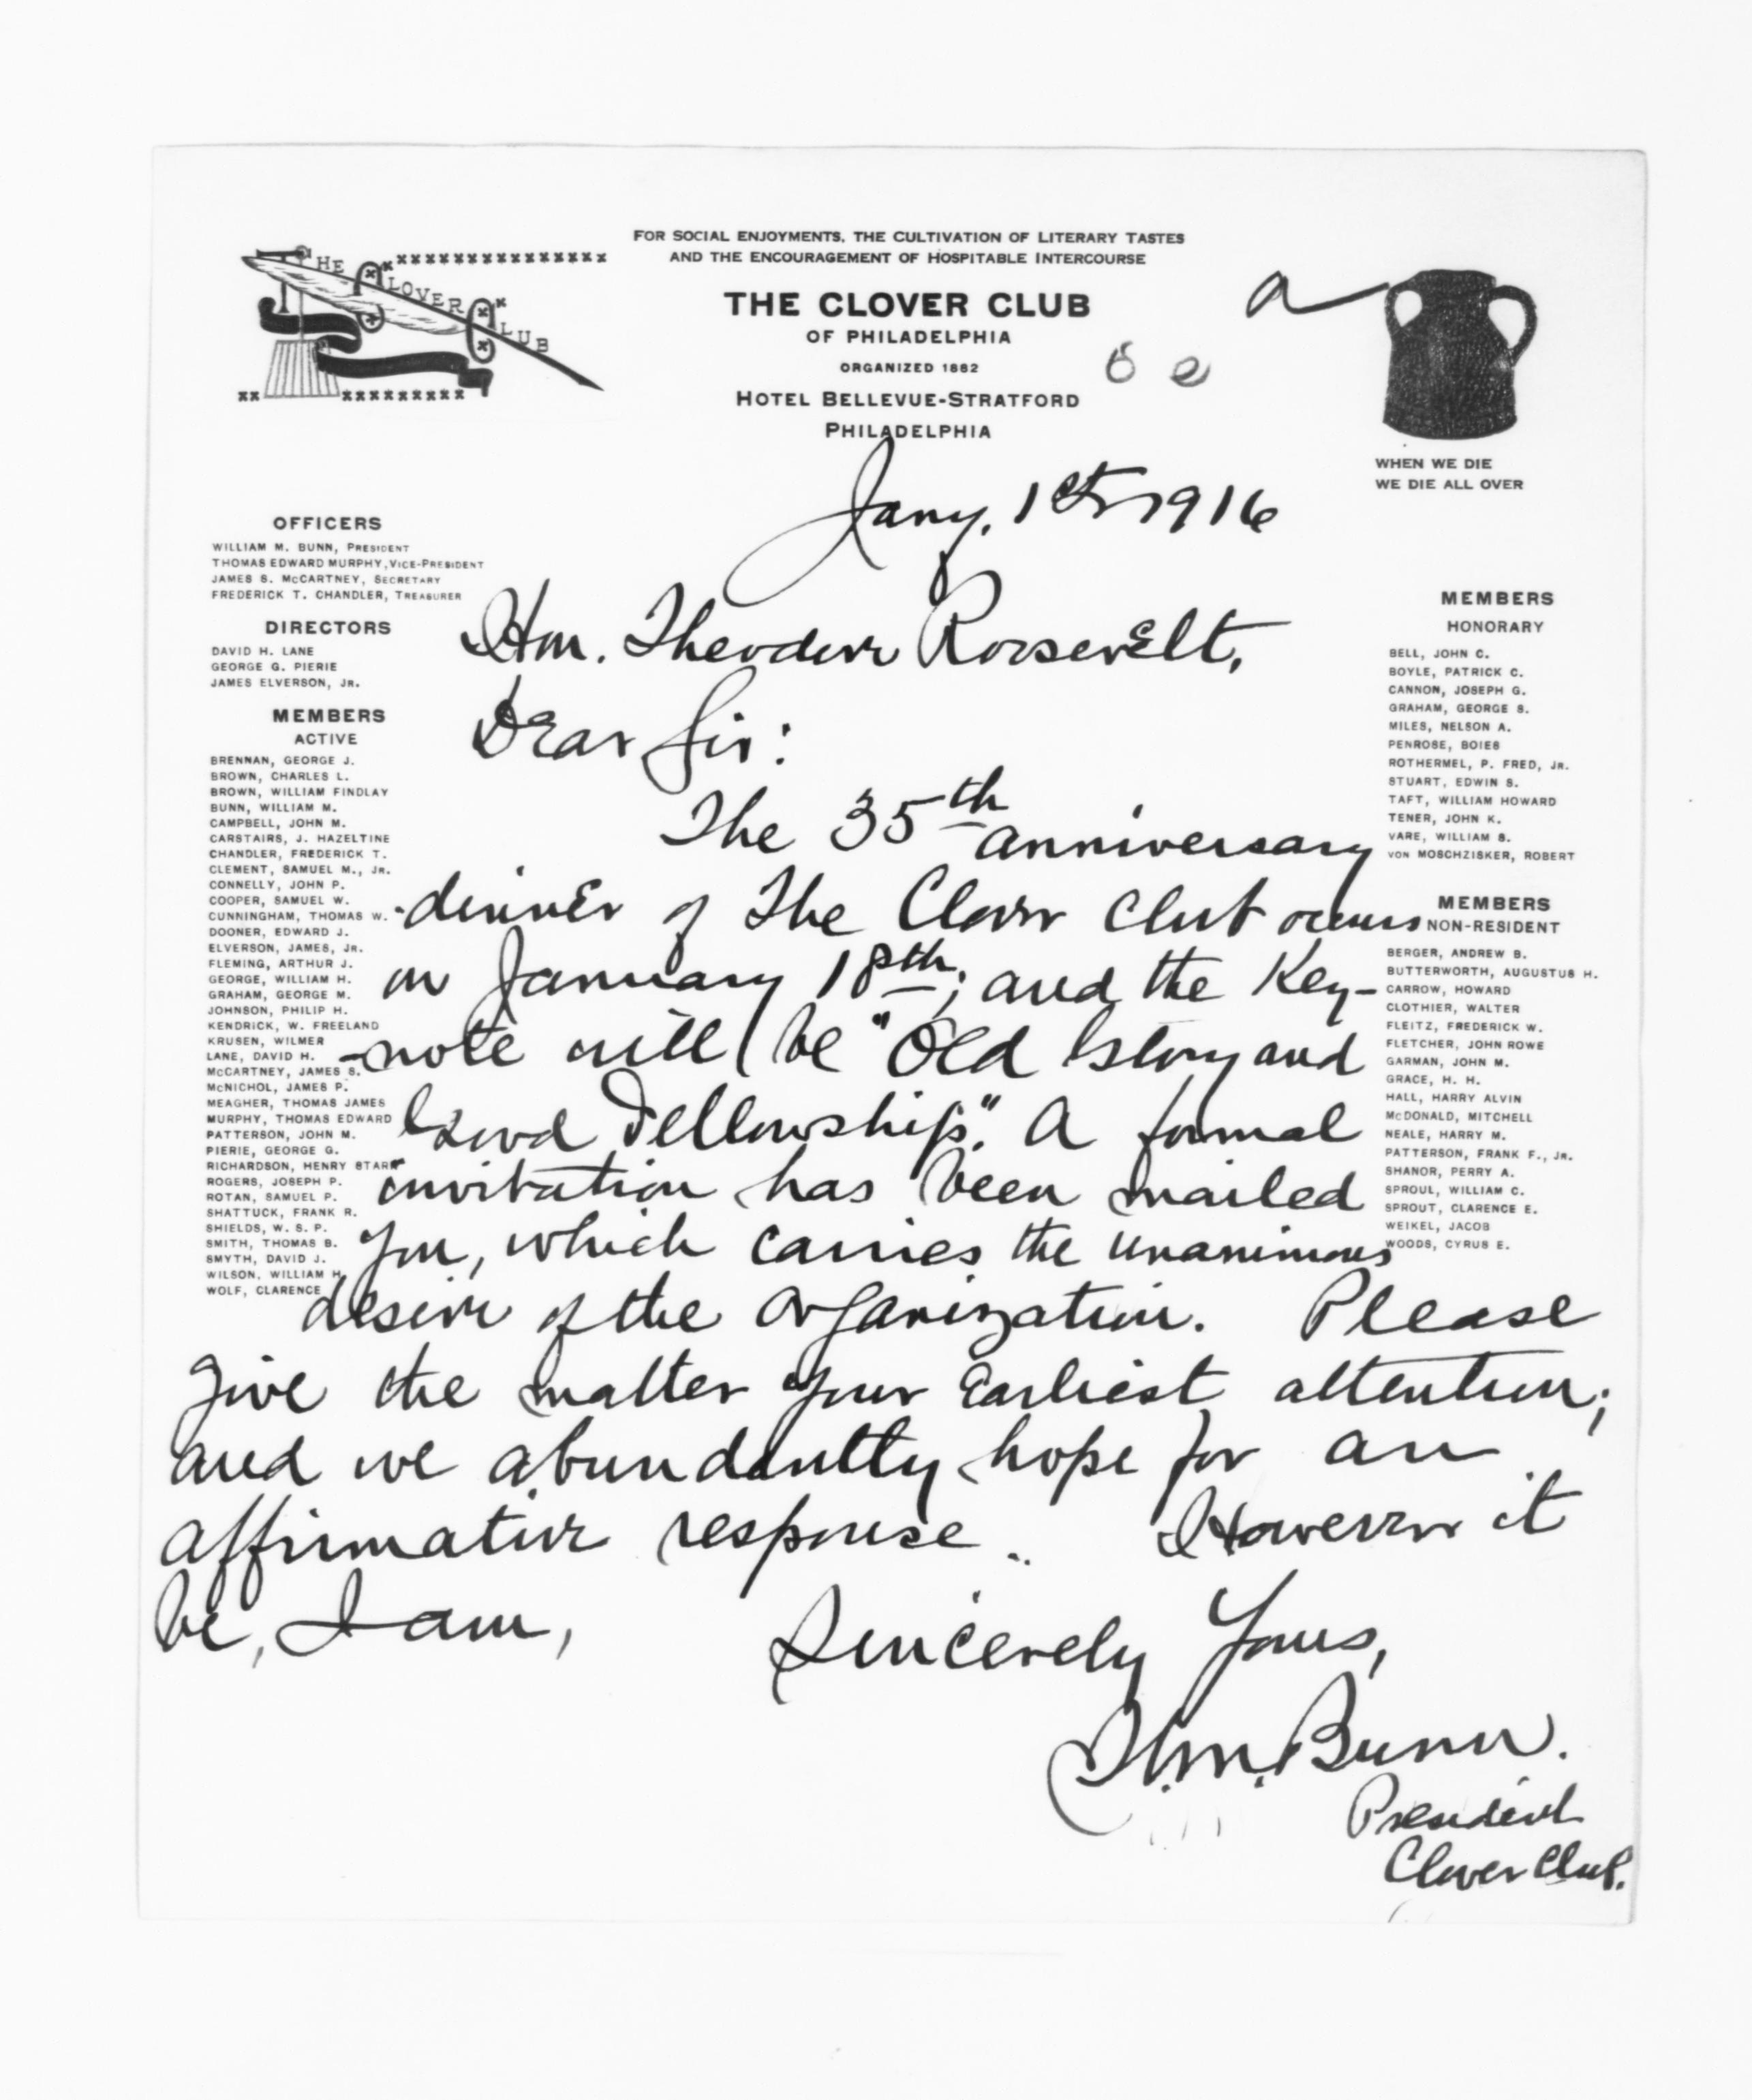 FOR SOCIAL ENJOYMENTS, THE CULTIVATION OF LITERARY TASTES
AND THE ENCOURAGEMENT OF HOSPITABLE INTERCOURSE
THE CLOVER CLUB
THE CLOVER CLUB
OF PHILADELPHIA
ORGANIZED 1882
HOTEL BELLEVUE-STRATFORD
PHILADELPHIA
a
WHEN WE DIE
WE DIE ALL OVER
OFFICERS
WILLIAM M. BUNN, PRESIDENT
THOMAS EDWARD MURPHY, VICE-PRESIDENT
JAMES S. McCARTNEY, SECRETARY
FREDERICK T. CHANDLER, TREASURER
DIRECTORS
DAVID H. LANE
GEORGE G. PIERIE
JAMES ELVERSON, JR.
MEMBERS
ACTIVE
BRENNAN, GEORGE J.
BROWN, CHARLES L.
BROWN, WILLIAM FINDLAY
BUNN, WILLIAM M.
CAMPBELL, JOHN M.
CARSTAIRS, J. HAZELTINE
CHANDLER, FREDERICK T.
CLEMENT, SAMUEL M., JR.
CONNELLY, JOHN P.
COOPER, SAMUEL W.
CUNNINGHAM, THOMAS W.
DOONER, EDWARD J.
ELVERSON, JAMES, JR.
FLEMING, ARTHUR J.
GEORGE, WILLIAM H.
GRAHAM, GEORGE M.
JOHNSON, PHILIP H.
KENDRICK, W. FREELAND
KRUSEN, WILMER
LANE, DAVID H.
McCARTNEY, JAMES S.
McNICHOL, JAMES P.
MEAGHER, THOMAS JAMES
MURPHY, THOMAS EDWARD
PATTERSON, JOHN M.
PIERIE, GEORGE G.
RICHARDSON, HENRY STARR
ROGERS, JOSEPH P.
ROTAN, SAMUEL P.
SHATTUCK, FRANK R.
SHIELDS, W. S. P.
SMITH, THOMAS B.
SMYTH, DAVID J.
WILSON, WILLIAM H.
WOLF, CLARENCE
MEMBERS
HONORARY
BELL, JOHN C.
BOYLE, PATRICK C.
CANNON, JOSEPH G.
GRAHAM, GEORGE S.
MILES, NELSON A.
PENROSE, BOIES
ROTHERMEL, P. FRED, JR.
STUART, EDWIN S.
TAFT, WILLIAM HOWARD
TENER, JOHN K.
VARE, WILLIAM S.
VON MOSCHZISKER, ROBERT
MEMBERS
NON-RESIDENT
BERGER, ANDREW B.
BUTTERWORTH, AUGUSTUS H.
CARROW, HOWARD
CLOTHIER, WALTER
FLEITZ, FREDERICK W.
FLETCHER, JOHN ROWE
GARMAN, JOHN M.
GRACE, H. H.
HALL, HARRY ALVIN
McDONALD, MITCHELL
NEALE, HARRY M.
PATTERSON, FRANK F., JR.
SHANOR, PERRY A.
SPROUL, WILLIAM C.
SPROUT, CLARENCE E.
WEIKEL, JACOB
WOODS, CYRUS E.
Jany. 1st 1916
Hon. Theodore Roosevelt,
Dear Sir:
The 35th anniversary
dinner of The Clover Club occurs
on January 18th; and the Key-
note will be "Old Glory and
Good Fellowship." A formal
invitation has been mailed
you, which carries the unanimous
desire of the organization. Please
give the matter your earliest attention;
and we abundantly hope for an
affirmative response. However it
be, I am,
Sincerely Yours,
Wm. M. Bunn.
President
Clover Club.